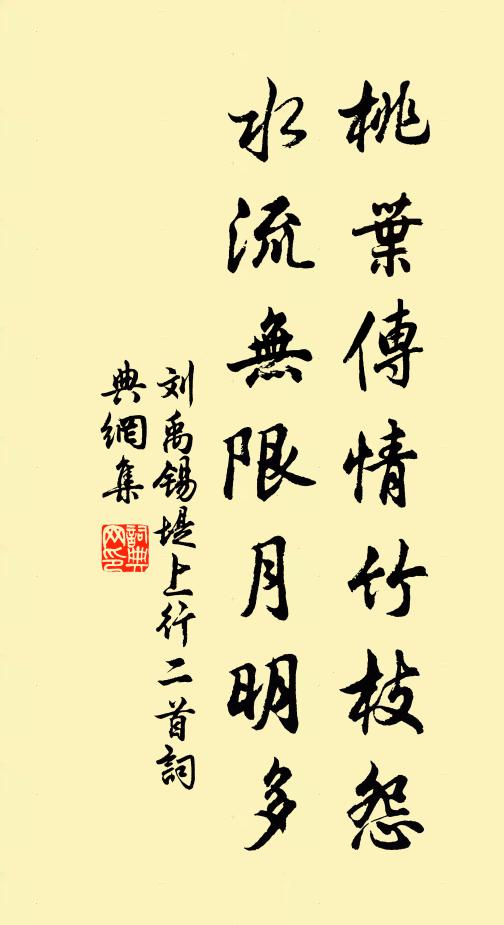 桃葉傳情竹枝怨
水流無限月明多
刘禹锡堤上行二首詞
典網集
詞典
网印